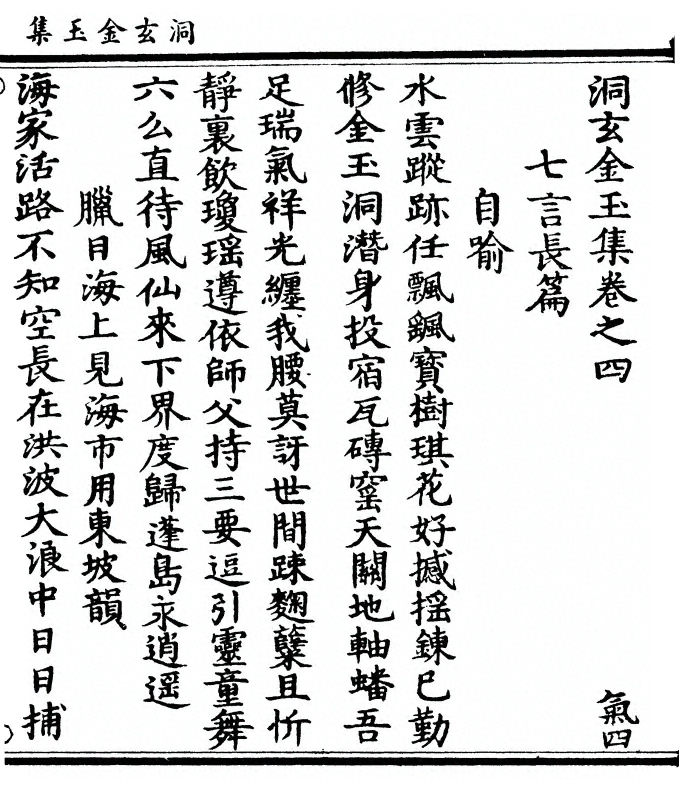 洞玄金玉集
洞玄金玉集卷之四
氣四
七言長篇
自喻
水雲蹤跡任飄颻寶樹琪花好撼揺鍊已勤
修金玉洞潛身投宿瓦磚窰天關地軸蟠吾
足瑞氣祥光纏我腰莫訝世間踈麴糵且忻
靜裏飲瓊瑶遵依師父持三要逗引靈童舞
六么直待風仙來下界度歸蓬島永逍遥
臘日海上見海市用東坡韻
海家活路不知空長在洪波大浪中日日捕